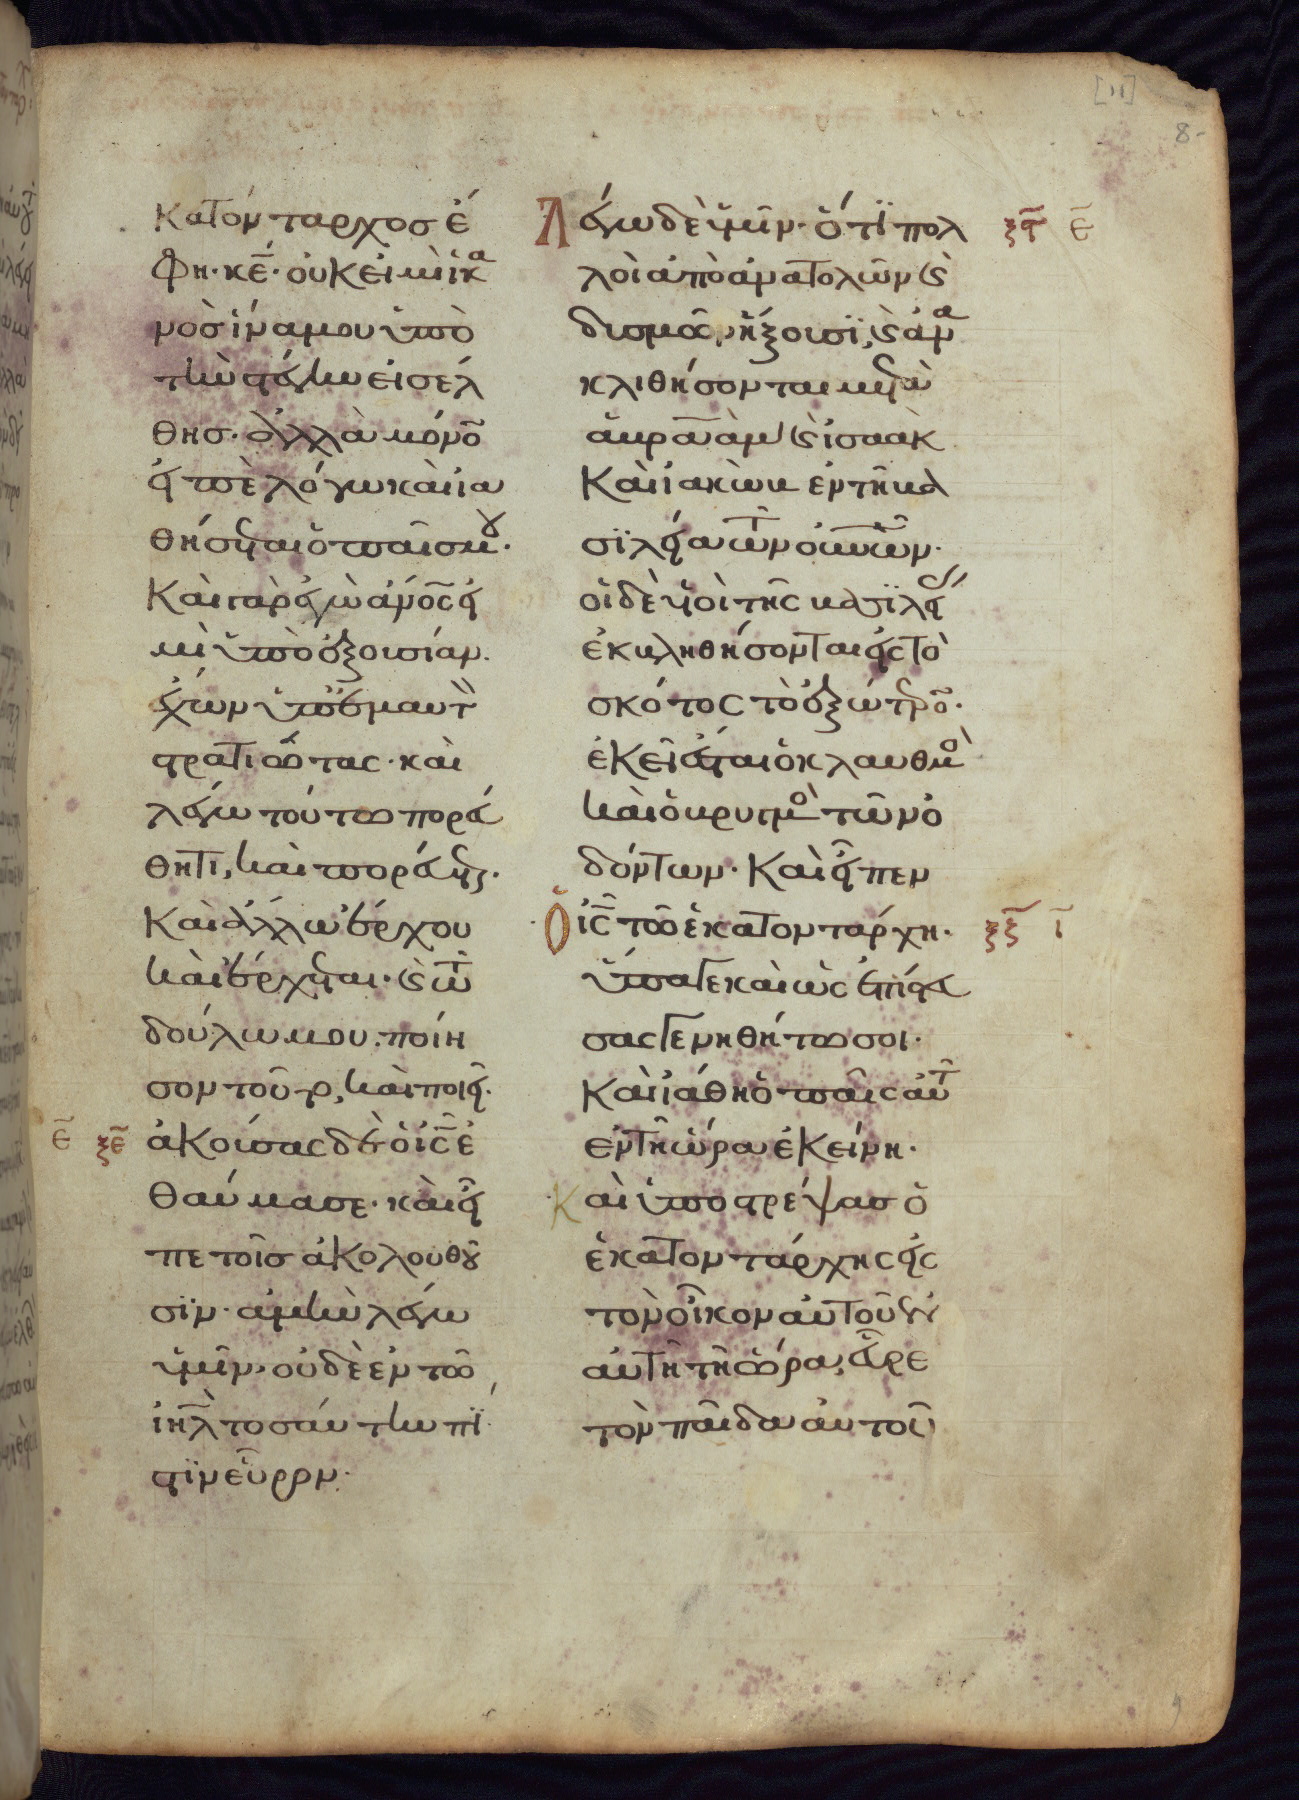 κατόνταρχοσ ἔ
φη· κ̅ε̅· οὐκ εἰμὶ ἱκα
νὸσ ἵνα μου ὑπὸ
τὴν στέγην εἰσέλ
θησ· ἀλλὰ μόνο̅
εἰπὲ λόγω καὶ ἰα
θήσεται ὁ παῖσ μου·
Καὶ γὰρ ἐγὼ ἄν̅ο̅ς̅ εἰ
μὶ ὑπὸ ἐξουσίαν·
ἔχων ὑπ' ἐμαυτὸ
στρατιώτας· καὶ
λέγω τούτω πορεύ
θητι, καὶ πορεύεται·
Καὶ ἄλλω ἔρχου
καὶ ἔρχεται· καὶ τῶ
δούλω μου· ποίη
σον τοῦτο, καὶ ποιεῖ·
ε̅ ξε̅ ἀκούσας δὲ ὁ ι̅ς̅ ἐ
θαύμασε· καὶ εἶ
πε τοῖσ ἀκολουθοῦ
σϊν· ἀμὴν λέγω
ὑμῖν· οὐδὲ ἐν τῶ
ι̅η̅λ̅ τοσαύτην πί
στϊν εὗρον·
Λέγω δὲ ὑμῖν· ὅτϊ πολ ξϛ̅ ε̅
λοὶ ἀπὸ ἀνατολῶν καὶ
δυσμῶν ἥξουσϊ, καὶ ἀνα
κλιθήσονται μετὰ
ἀβραὰμ καὶ ἰσαὰκ
Καὶ ἰακὼβ ἐν τῆ βα
σϊλεία τῶν οὐνῶν·
οἱ δὲ υἱοὶ τῆς βασϊλεί
ἐκβληθήσονται εἰς τὸ
σκότος τὸ ἐξώτερο̅·
ἐκεῖ ἔσται ὁ κλαυθμὸ
καὶ ὁ βρυγμὸ τῶν ὀ
δόντων· Καὶ εἶπεν
ὁ ι̅ς̅ τῶ ἑκατοντάρχη· ξζ̅ ι̅
ὕπαγε καὶ ὡς ἐπίστευ
σας γενηθήτω σοι·
Καὶ ἰάθη ὁ παῖς αὐτ
ἐν τῆ ὥρα ἐκείνη·
Καὶ ὑποστρέψασ ὁ
ἑκατοντάρχης εἰς
τὸν οἶκον αὐτοῦ ἐν
αὐτῆ τῆ ὥρα, εὗρε
τὸν παῖδα αὐτοῦ